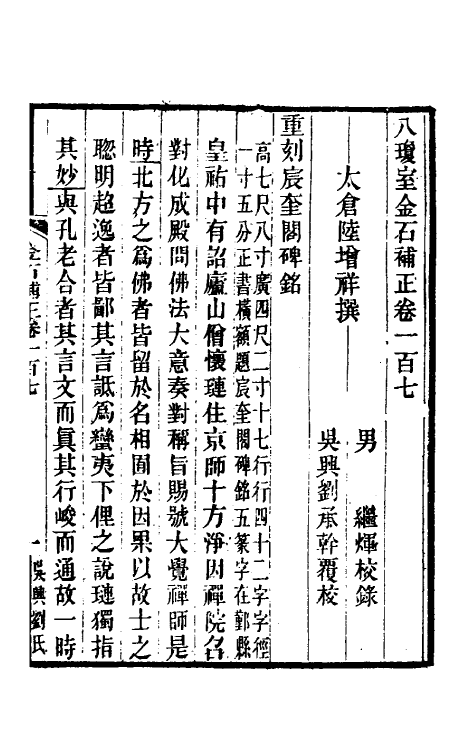 八瓊室金石補正卷一百七
太倉陸增祥撰
男 繼煇校錄
吳興劉承幹覆校
重刻宸奎閣碑銘
高七尺八寸廣四尺二寸十七行行四十二字字徑
一寸五分正書橫額題宸奎閣碑銘五篆字在鄞縣
皇祐中有詔廬山僧懷璉住京師十方淨因禪院召
對化成殿問佛法大意奏對稱旨賜號大覺禪師是
時北方之爲佛者皆留於名相囿於因果以故士之
聰明超逸者皆鄙其言詆爲蠻夷下俚之說璉獨指
其妙與孔老合者其言文而眞其行峻而通故一時
金石補正卷一百七
一
吳興劉氏